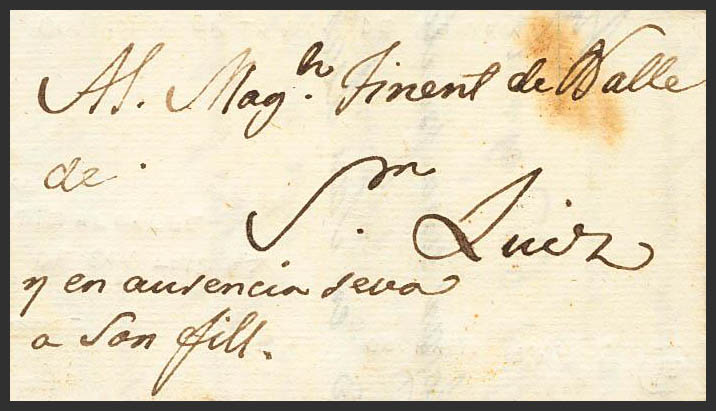 Al. Mag.h Tinent de Balle
de.
Sn. Luiz
y en ausencia seva
a son fill.